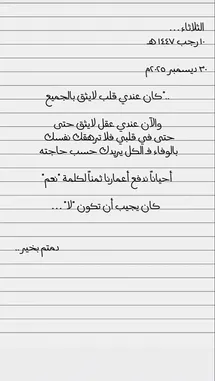 الثلاثاء ...
١٠ رجب ١٤٤٧ هـ
٣٠ ديسمبر ٢٠٢٥م
.."كان عندي قلب لايثق بالجميع
والآن عندي عقل لايثق حتى
حتى في قلبي فلا ترهقك نفسك
بالوفاء فـ الكل يريدك حسب حاجته
أحياناً ندفع أعمارنا ثمناً لكلمة "نعم"
كان يجيب أن تكون "لا" ...
دمتم بخير..